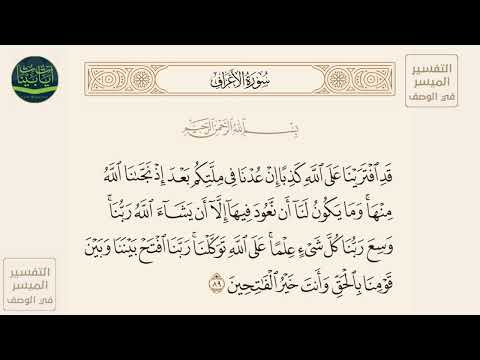 آيات بينات
التفسير
الميسر
في الوصف
سُورَةُ الأَعْرَافِ
بِسْمِ اللَّهِ الرَّحْمَٰنِ الرَّحِيمِ
قَدِ ٱفْتَرَيْنَا عَلَى ٱللَّهِ كَذِبًا إِنْ عُدْنَا فِي مِلَّتِكُم بَعْدَ إِذْ نَجَّىٰنَا ٱللَّهُ
مِنْهَاۚ وَمَا يَكُونُ لَنَآ أَن نَّعُودَ فِيهَآ إِلَّآ أَن يَشَآءَ ٱللَّهُ رَبُّنَاۚ
وَسِعَ رَبُّنَا كُلَّ شَيْءٍ عِلْمًاۚ عَلَى ٱللَّهِ تَوَكَّلْنَاۚ رَبَّنَا ٱفْتَحْ بَيْنَنَا وَبَيْنَ
قَوْمِنَا بِٱلْحَقِّ وَأَنتَ خَيْرُ ٱلْفَٰتِحِينَ ٨٩
التفسير
الميسر
في الوصف